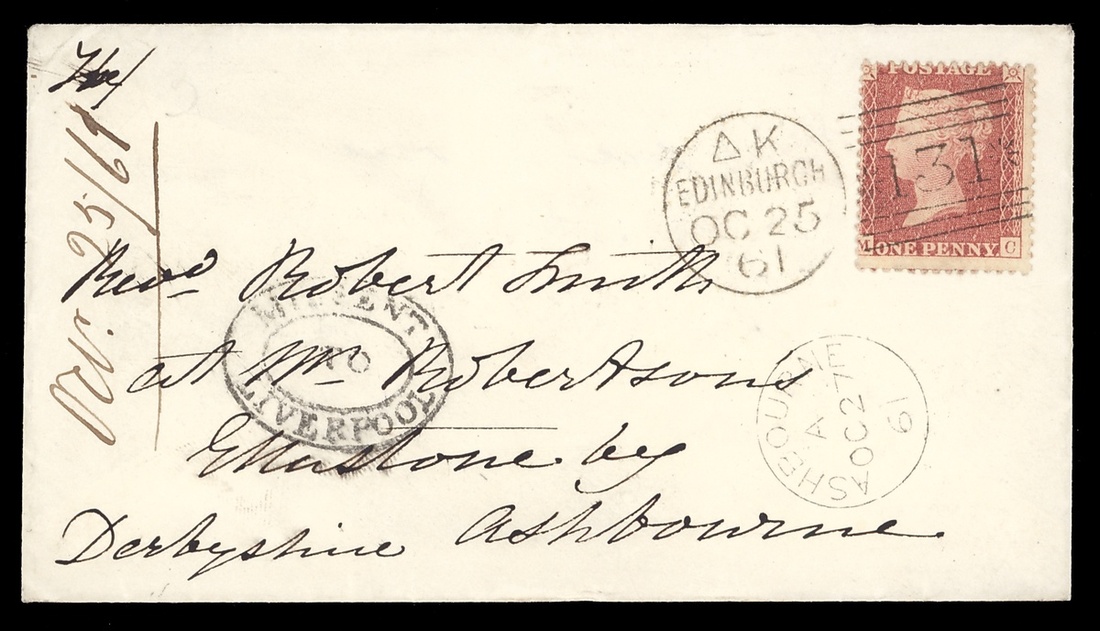 Oct. 25/61
POSTAGE
131
M ONE PENNY. C
Δ K
EDINBURGH
OC 25
61
Revd. Robert Smith
at Mr Robertsons
Ellastone by
Ashbourne
Derbyshire
MISSENT
TO
LIVERPOOL
ASHBOURNE
A
OC 27
61